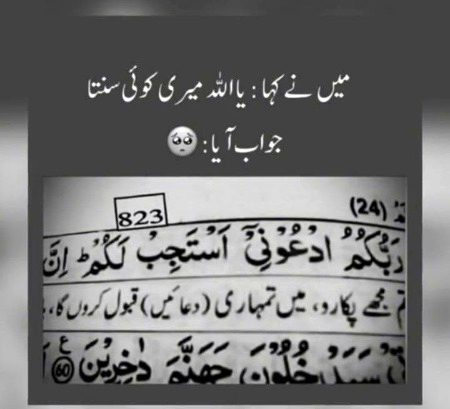 میں نے کہا : یا اللہ میری کوئی سنتا
جواب آیا : 🥺
823 (24)
رَبُّكُمُ ادْعُوْنِیْۤ اَسْتَجِبْ لَكُمْ ؕ اِنَّ
مجھے پکارو، میں تمہاری (دعائیں) قبول کروں گا،
سَیَدْخُلُوْنَ جَهَنَّمَ دٰخِرِیْنَ ﴿60﴾ ع